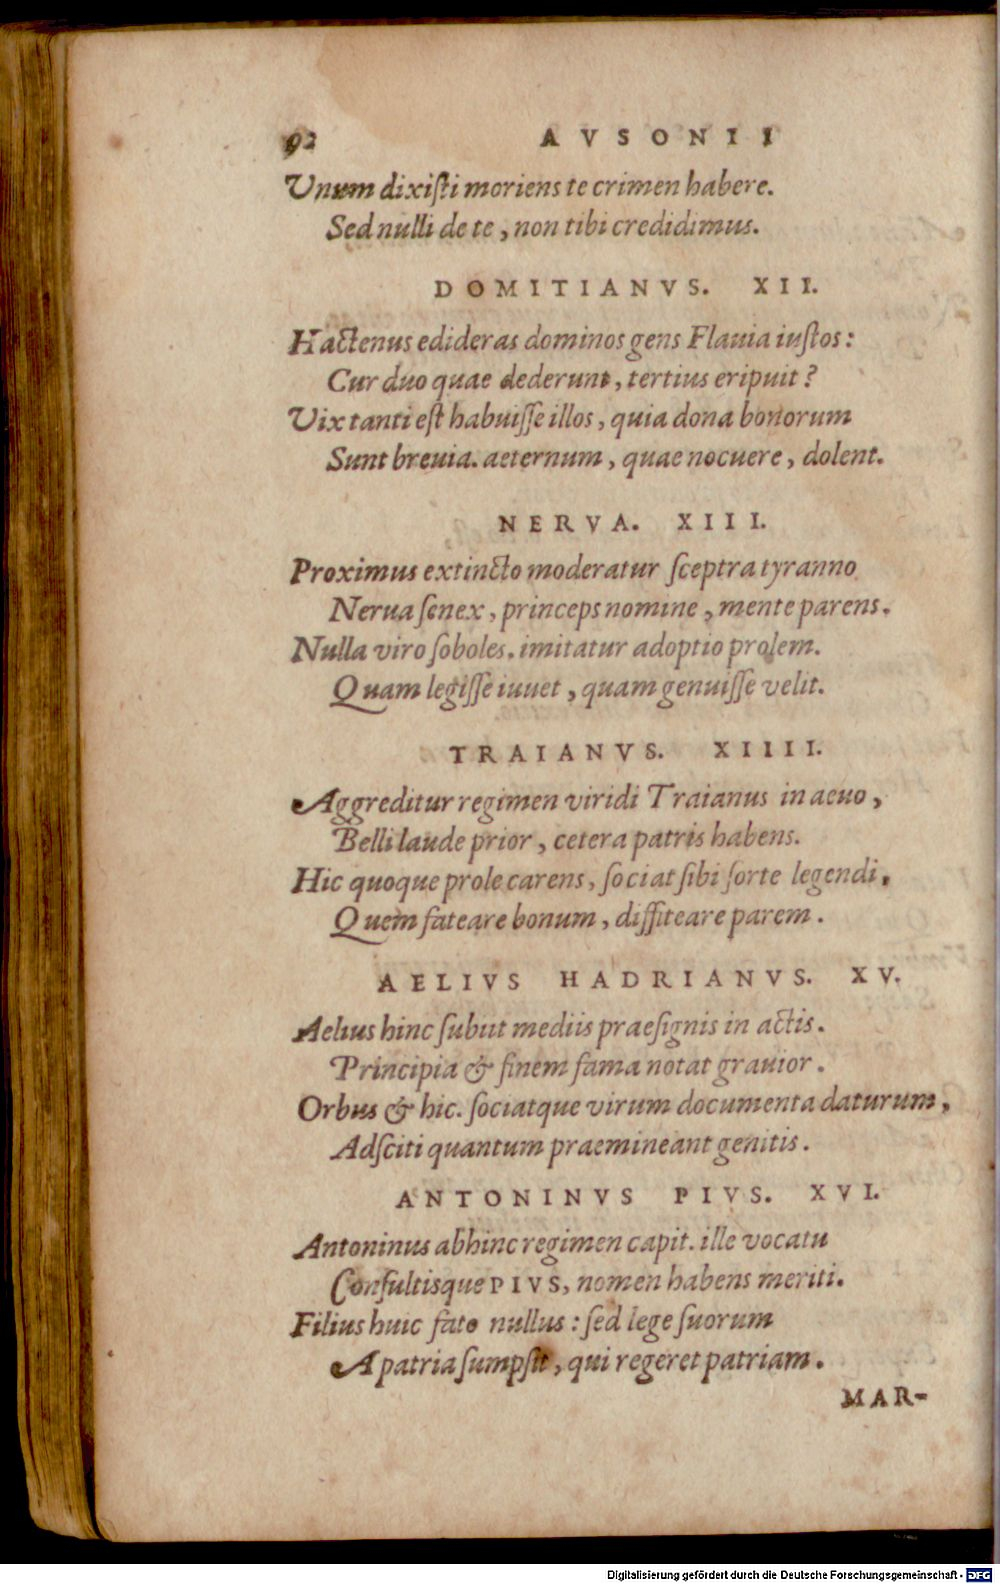 92 AVSONII
Vnum dixiſti moriens te crimen habere.
Sed nulli de te, non tibi credidimus.
DOMITIANVS. XII.
Hactenus edideras dominos gens Flauia iuſtos:
Cur duo quae dederunt, tertius eripuit?
Vix tanti eſt habuiſſe illos, quia dona bonorum
Sunt breuia. aeternum, quae nocuere, dolent.
NERVA. XIII.
Proximus extincto moderatur ſceptra tyranno
Nerua ſenex, princeps nomine, mente parens.
Nulla viro ſoboles. imitatur adoptio prolem.
Quam legiſſe iuuet, quam genuiſſe velit.
TRAIANVS. XIIII.
Aggreditur regimen viridi Traianus in aeuo,
Belli laude prior, cetera patris habens.
Hic quoque prole carens, ſociat ſibi ſorte legendi,
Quem fateare bonum, diffiteare parem.
AELIVS HADRIANVS. XV.
Aelius hinc ſubiit mediis praeſignis in actis.
Principia & finem fama notat grauior.
Orbus & hic. ſociatque virum documenta daturum,
Adſciti quantum praemineant genitis.
ANTONINVS PIVS. XVI.
Antoninus abhinc regimen capit. ille vocatu
Conſultisque PIVS, nomen habens meriti.
Filius huic fato nullus: ſed lege ſuorum
A patria ſumpſit, qui regeret patriam.
MAR-
Digitalisierung gefördert durch die Deutsche Forschungsgemeinschaft - DFG